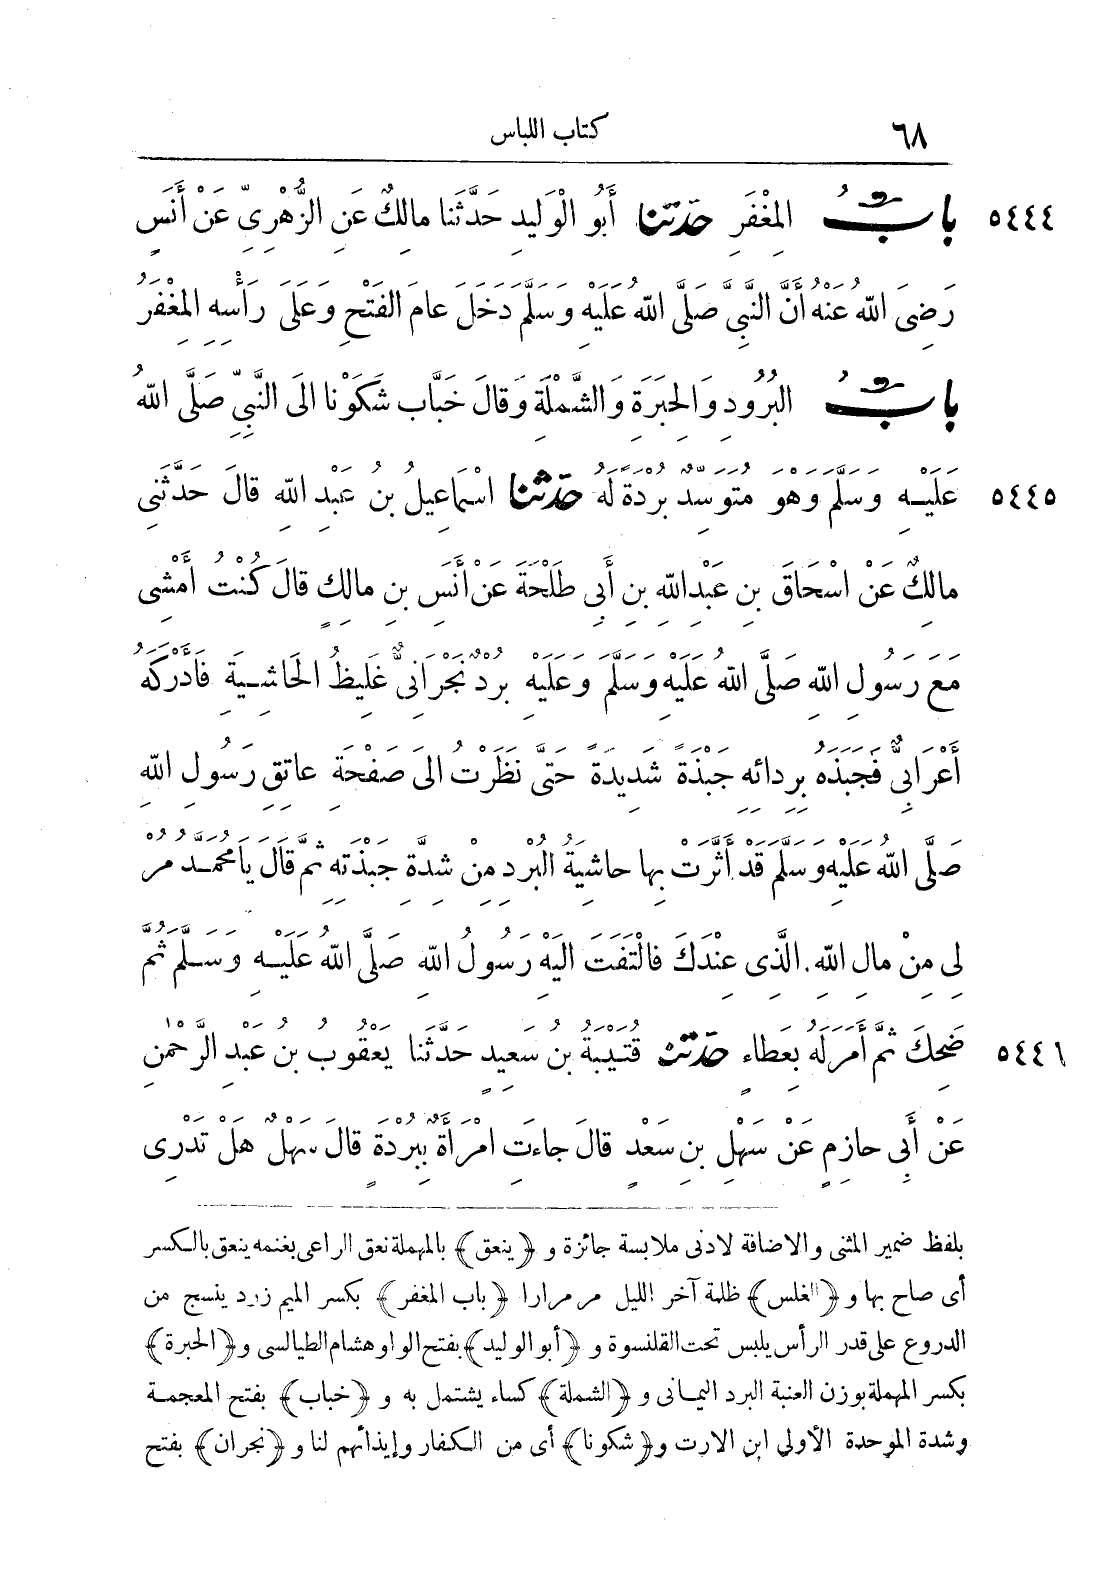 ٦٨ كتاب اللباس
٥٤٤٤ بابُ المِغْفَرِ حَدَّثَنا أَبُو الْوَلِيدِ حَدَّثَنا مالِكٌ عَنِ الزُّهْرِىِّ عَنْ أَنَسٍ
رَضِىَ اللّٰهُ عَنْهُ أَنَّ النَّبِىَّ صَلَّى اللّٰهُ عَلَيْهِ وَسَلَّمَ دَخَلَ عامَ الفَتْحِ وَعَلَى رَأْسِهِ المِغْفَرُ
بابُ البُرُودِ وَالحِبَرَةِ وَالشَّمْلَةِ وَقالَ خَبَّابٌ شَكَوْنا الَى النَّبِىِّ صَلَّى اللّٰهُ
٥٤٤٥ عَلَيْهِ وَسَلَّمَ وَهْوَ مُتَوَسِّدٌ بُرْدَةً لَهُ حَدَّثَنا اسْمَاعِيلُ بنُ عَبْدِ اللّٰهِ قالَ حَدَّثَنِى
مالِكٌ عَنْ اسْحَاقَ بنِ عَبْدِاللّٰهِ بنِ أَبِى طَلْحَةَ عَنْ أَنَسِ بنِ مالِكٍ قالَ كُنْتُ أَمْشِى
مَعَ رَسُولِ اللّٰهِ صَلَّى اللّٰهُ عَلَيْهِ وَسَلَّمَ وَعَلَيْهِ بُرْدٌ نَجْرَانِىٌّ غَلِيظُ الحَاشِيَةِ فَأَدْرَكَهُ
أَعْرَابِىٌّ فَجَبَذَهُ بِرِدائِهِ جَبْذَةً شَدِيدَةً حَتَّى نَظَرْتُ الَى صَفْحَةِ عاتِقِ رَسُولِ اللّٰهِ
صَلَّى اللّٰهُ عَلَيْهِ وَسَلَّمَ قَدْ أَثَّرَتْ بِها حاشِيَةُ البُرْدِ مِنْ شِدَّةِ جَبْذَتِهِ ثُمَّ قالَ يَا مُحَمَّدُ مُرْ
لِى مِنْ مالِ اللّٰهِ الَّذِى عِنْدَكَ فالْتَفَتَ الَيْهِ رَسُولُ اللّٰهِ صَلَّى اللّٰهُ عَلَيْهِ وَسَلَّمَ ثُمَّ
٥٤٤٦ ضَحِكَ ثُمَّ أَمَرَ لَهُ بِعَطاءٍ حَدَّثَنا قُتَيْبَةُ بنُ سَعِيدٍ حَدَّثَنا يَعْقُوبُ بنُ عَبْدِ الرَّحْمٰنِ
عَنْ أَبِى حازِمٍ عَنْ سَهْلِ بنِ سَعْدٍ قالَ جاءَتِ امْرَأَةٌ بِبُرْدَةٍ قالَ سَهْلٌ هَلْ تَدْرِى
بلفظ ضمير المثنى والاضافة لادنى ملابسة جائزة و ﴿ينعق﴾ بالمهملة نعق الراعى بغنمه ينعق بالكسر
أى صاح بها و ﴿الغلس﴾ ظلمة آخر الليل مر مرارا ﴿باب المغفر﴾ بكسر الميم زرد ينسج من
الدروع على قدر الرأس يلبس تحت القلنسوة و ﴿أبو الوليد﴾ بفتح الواو هشام الطيالسى و ﴿الحبرة﴾
بكسر المهملة بوزن العنبة البرد اليمانى و ﴿الشملة﴾ كساء يشتمل به و ﴿خباب﴾ بفتح المعجمة
وشدة الموحدة الأولى ابن الارت و ﴿شكونا﴾ أى من الكفار وإيذائهم لنا و ﴿نجران﴾ بفتح